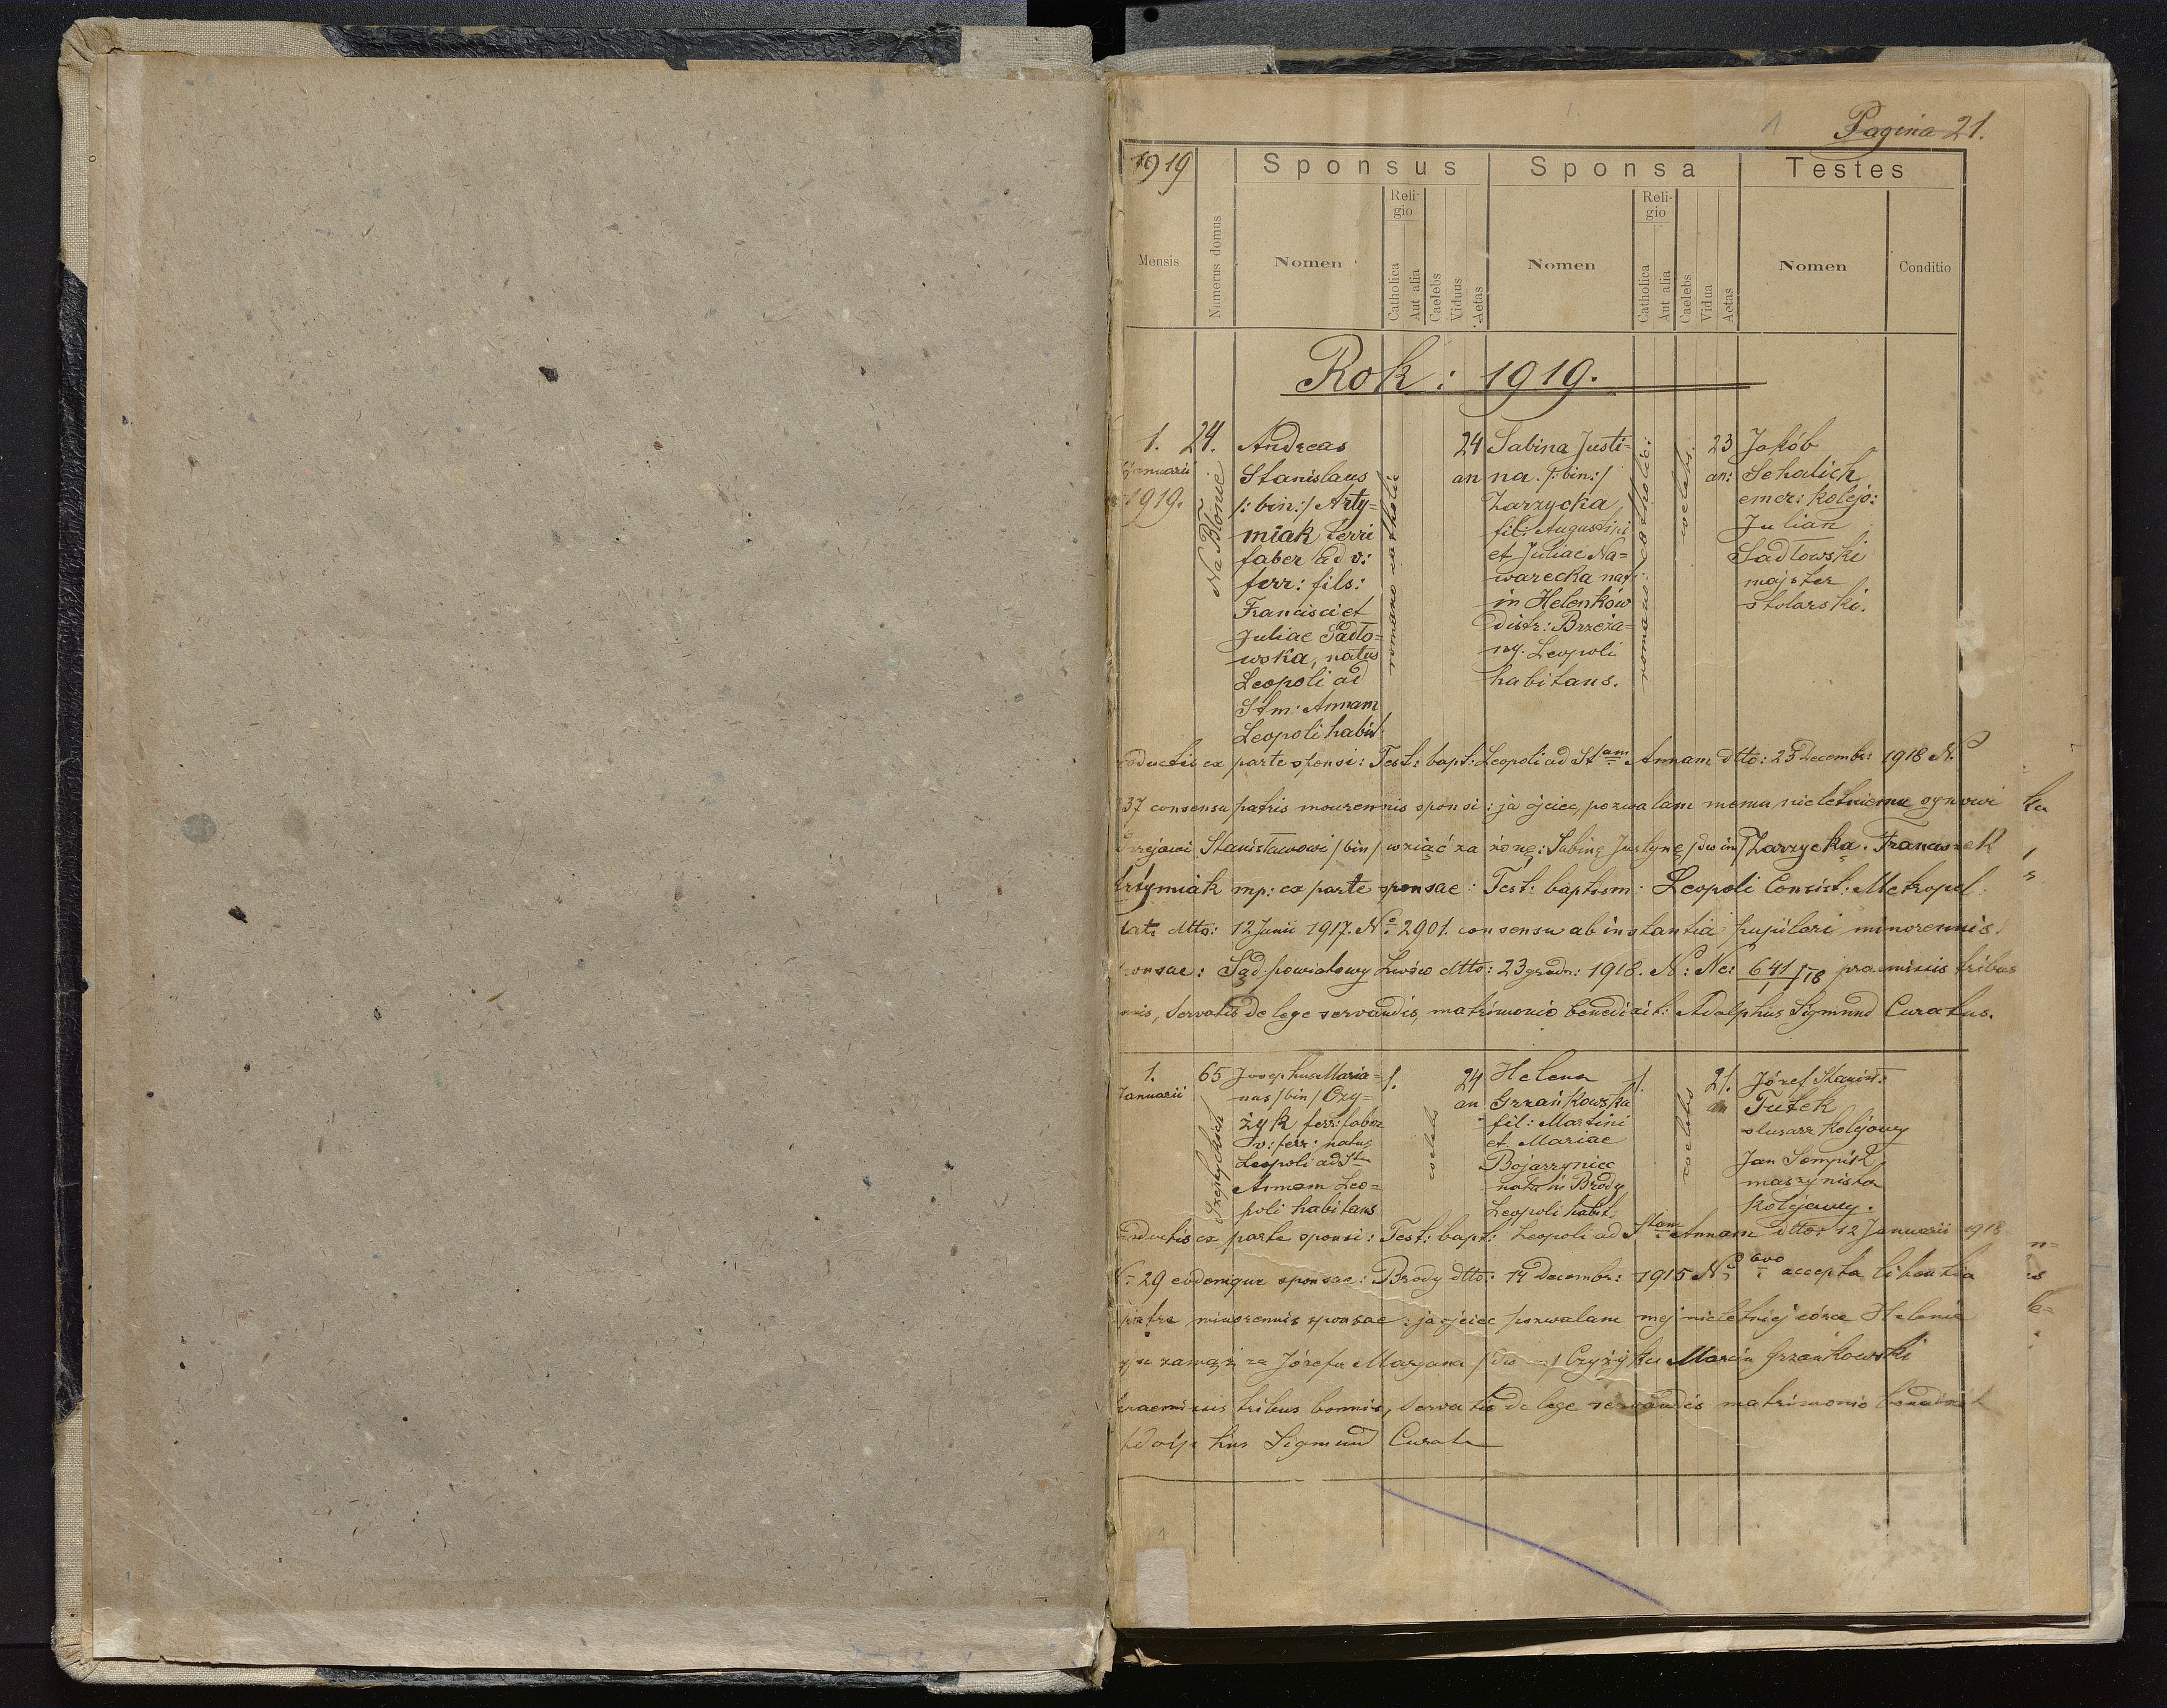 1
Pagina 21.
1919
Sponsus
Sponsa
Testes
Mensis
Numerus domus
Nomen
Reli-
gio
Catholica
Aut alia
Caelebs
Viduus
Aetas
Nomen
Reli-
gio
Catholica
Aut alia
Caelebs
Vidua
Aetas
Nomen
Conditio
Rok: 1919.
1.
Januarii
1919.
24.
Na Błonie
Andreas
Stanislaus
/: bin:/ Arty=
miak ferri
faber ad v:
ferr: fils:
Francisci et
Juliae Sadło=
wska, natus
Leopoli ad
Stm: Annam
Leopoli habit.
romano catholic
24
an
Sabina Justi=
na. /: bin:/
Zarzycka
fil: Augustini
et Juliae Na=
warecka nat:
in Helenków
distr: Brzeża=
ny. Leopoli
habitans.
romano catholic:
coelebs.
23
an:
Jakób
Schalich
emer: kolejo:
Julian
Sadłowski
majster
stolarski.
oductis ex parte sponsi: Test: bapt: Leopoli ad Stam Annam dtto: 23 Decembr: 1918 N.
37 consensu patris minorennis sponsi: ja ojciec, pozwalam memu nieletniemu synowi
drzejowi Stanisławowi /bin/ wziąć za żonę: Sabinę Justynę /dwim/ Zarzycką. Franciszek
Artymiak mp: ex parte sponsae: Test: baptism: Leopoli Consist: Metropol.
lat: dtto: 12 Junii 1917. No: 2901. consensu ab instantia pupilari minorennis
ponsae: Sąd powiatowy Lwów dtto: 23 grudn: 1918. N: Nc: 641/18 praemissis tribus
nis, servatis de lege servandis, matrimonio benedixit: Adolphus Sigmund Curatus.
1.
Januarii
65
Szeptyckich
Josephus Maria=
nus /bin/ Czy=
żyk ferr: faber
v: ferr: natus
Leopoli ad Stm
Annam Leo=
poli habitans
1.
coelebs
24
an
Helena
Grzańkowska
fil: Martini
et Mariae
Bojarzyniec
nata in Brody
Leopoli habit:
1.
coelebs
21.
an
Józef Stanisł:
Tutek
slusarz kolejowy
Jan Sempisz
maszynista
kolejowy.
oductis ex parte sponsi: Test: bapt: Leopoli ad Stam Annam dtto: 12 Januarii 1918
N: 29 eodemque sponsae: Brody dtto: 14 Decembr: 1915 No 600 accepta licentia
patre minorennis sponsae: ja ojciec pozwalam mej nieletniej córce Helenie
za Józefa Maryana Czyżyka Marcin Grzankowski
praemissis tribus bannis, servatis de lege servandis matrimonio benedixit
Adolphus Sigmund Curatus
1